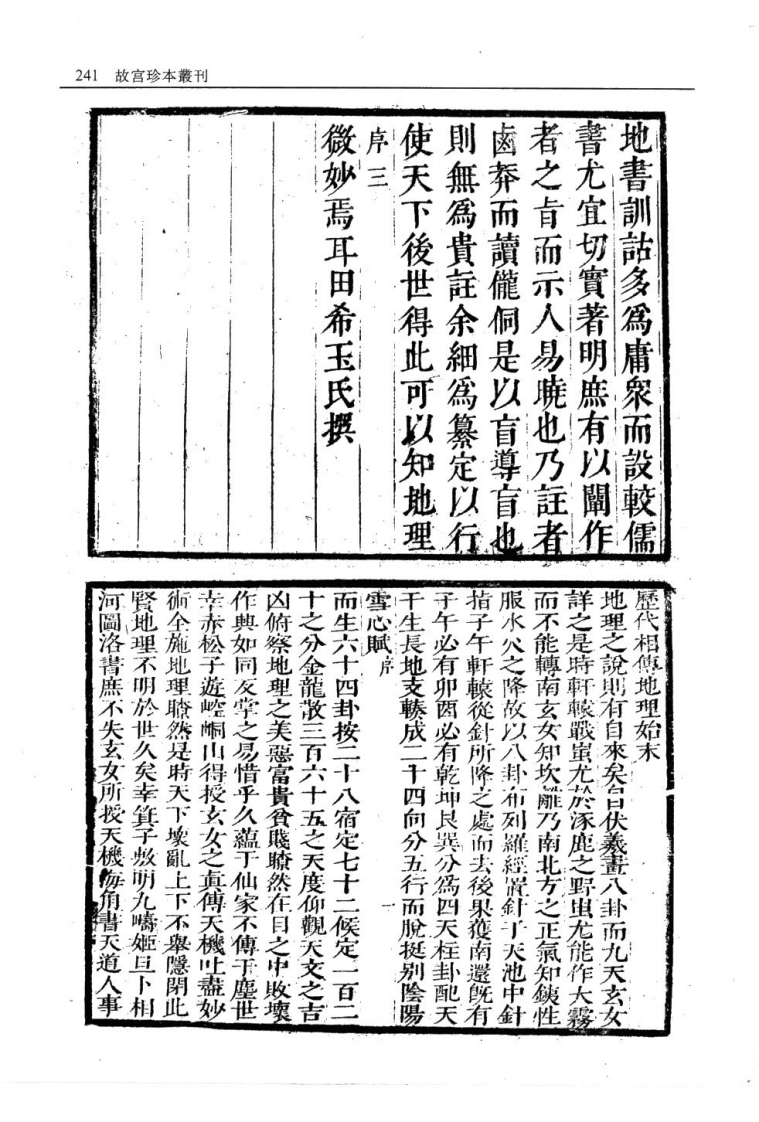 241 故宫珍本叢刊
地書訓詁多爲庸衆而設較儒
書尤宜切實著明庶有以闡作
者之旨而示人易曉也乃註者
鹵莽而讀儱侗是以盲導盲也
則無爲貴註余細爲纂定以行
使天下後世得此可以知地理
序三
微妙焉耳田希玉氏撰
歷代相傳地理始末
地理之說則有自來矣自伏羲畫八卦而九天玄女
詳之是時軒轅戰蚩尤於涿鹿之野蚩尤能作大霧
而不能轉南玄女知坎離乃南北方之正氣知鐵性
服水火之降故以八卦布列羅經置針于天池中針
指子午軒轅從針所降之處而去後果獲南還旣有
子午必有卯酉必有乾坤艮巽分爲四天柱卦配天
干生長地支輳成二十四向分五行而脫挺别陰陽
雪心賦序
一
而生六十四卦按二十八宿定七十二候定一百二
十之分金龍散三百六十五之天度仰觀天文之吉
凶俯察地理之美惡富貴貧賤瞭然在目之中敗壞
作興如同反掌之易惜乎久蘊于仙家不傳于塵世
幸赤松子遊崆峒山得授玄女之真傳天機吐盡妙
術全施地理瞭然是時天下壞亂上下不舉隱閉此
賢地理不明於世久矣幸箕子敷明九疇姬旦卜相
河圖洛書庶不失玄女所授天機海角書天道人事